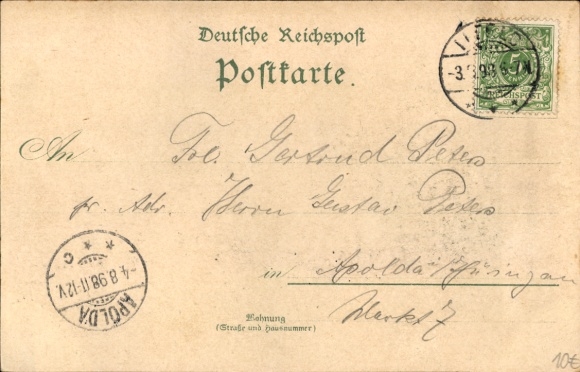 Deutsche Reichspost
Postkarte.
-3.8.98.
5
REICHSPOST
An Frl. Gertrud Peters
pr. Adr. Herrn Gustav Peters
in Apolda Thüringen
Markt 7
Wohnung
(Straße und Hausnummer)
-4.8.98.11-12V.
C
APOLDA
10€